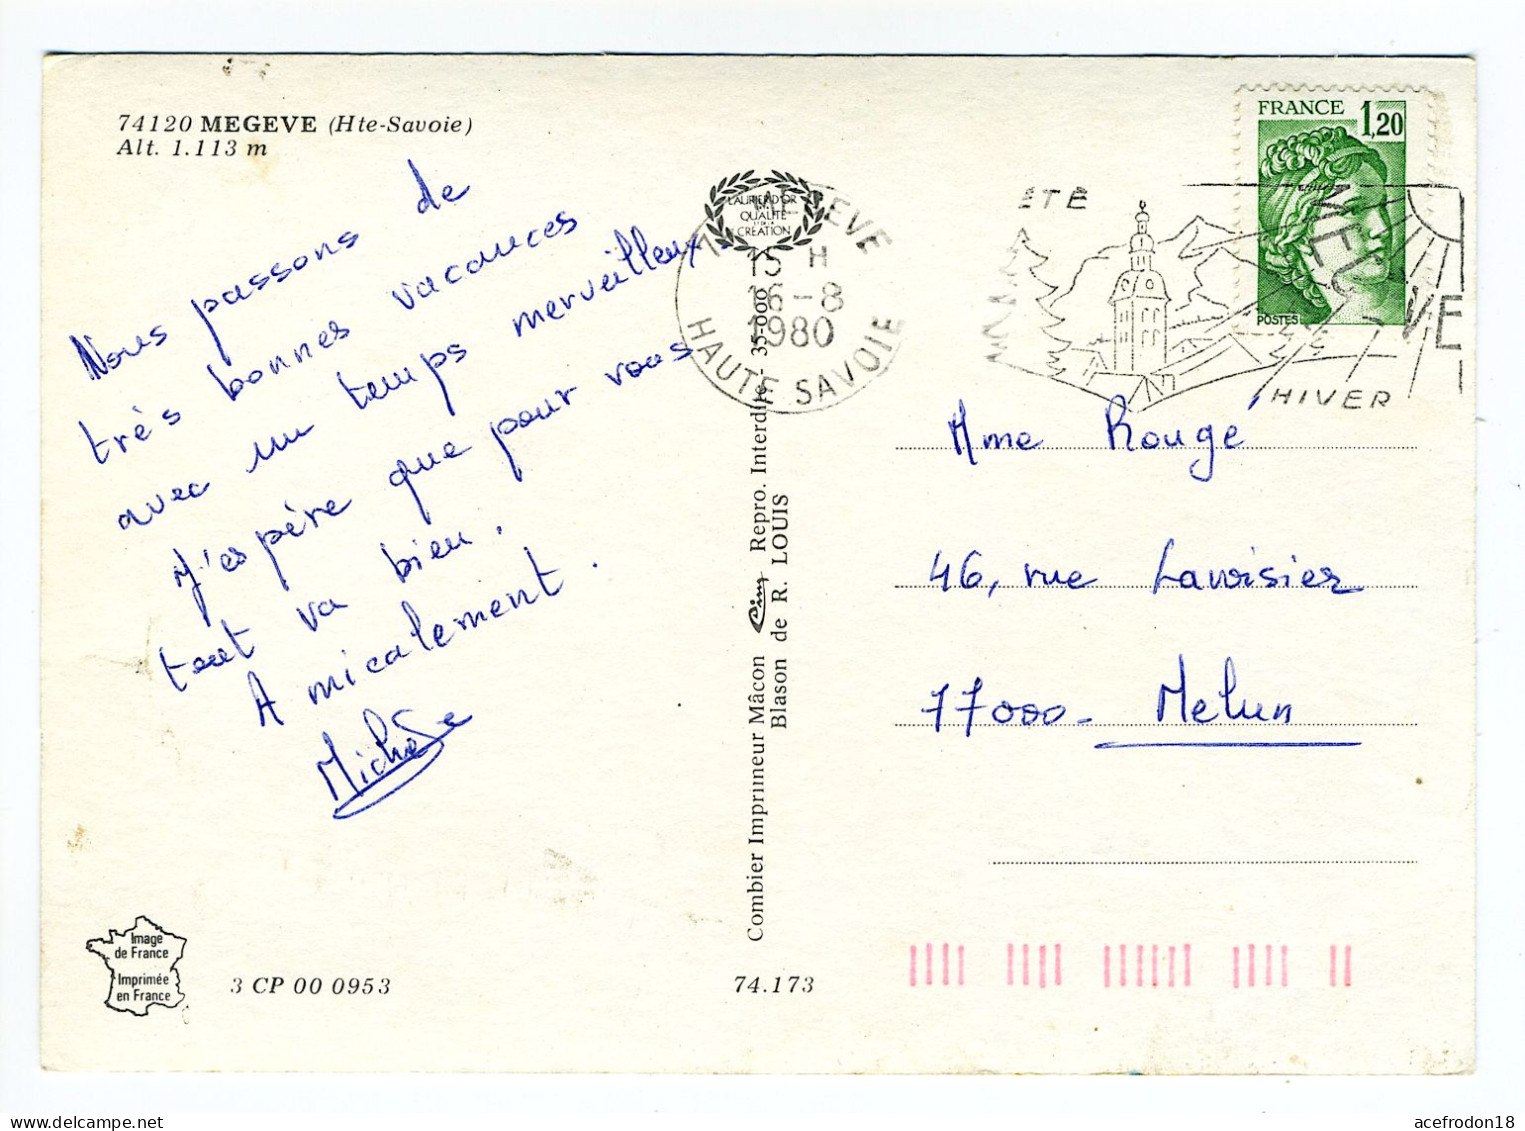 74120 MEGEVE (Hte-Savoie)
Alt. 1.113 m
Nous passons de
très bonnes vacances
avec un temps merveilleux.
J'espère que pour vous
tout va bien.
Amicalement.
Michèle
Image
de France
Imprimée
en France
3 CP 00 0953
74.173
Combier Imprimeur Mâcon Cim Repro. Interdite - 35-000
Blason de R. LOUIS
LAURIER D'OR
QUALITÉ
CRÉATION
MEGEVE
15 H
16-8
1980
HAUTE SAVOIE
ETE
MEGEVE
HIVER
FRANCE 1,20
POSTES
Mme Rouge
46, rue Lavoisier
77000 - Melun
acefrodon18